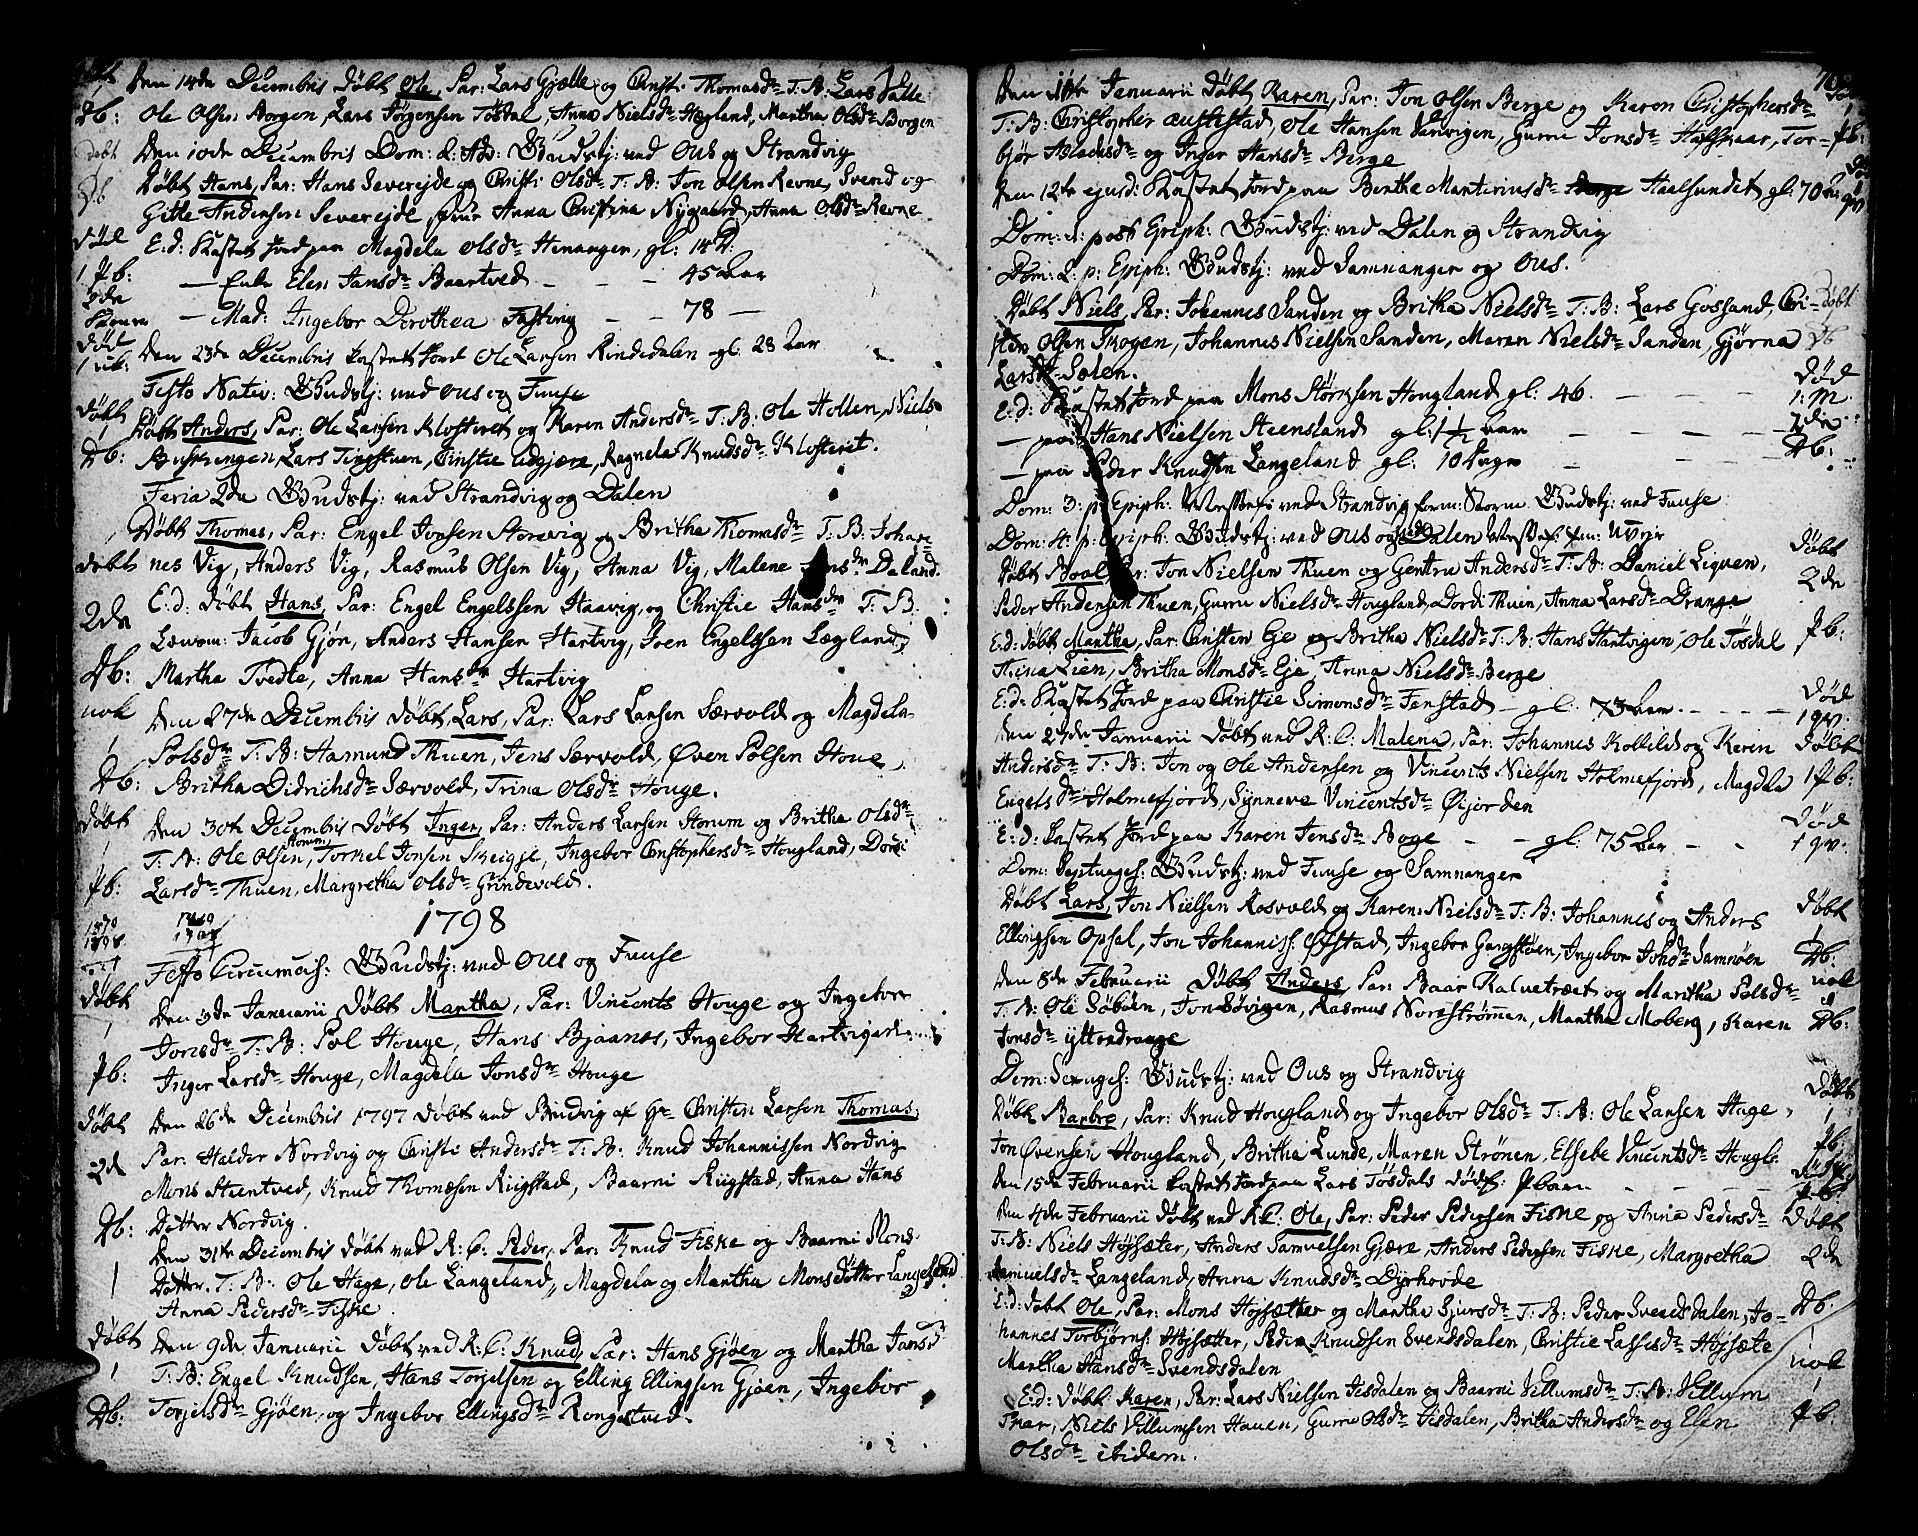 Den 14de Decembris Döbt Ole, Par: Lars Gjelle og Christi Thomasdr T: B: Lars
Ole Olsen Borgen, Lars Jörgensen Tösdal, Anna Nielsdr Hegland, Martha Olsdr Borgen
Den 10de Decembris Dom: 2. Adv: Gudstj: ved Ous og Strandvig
Döbt Hans, Par: Hans Severejde og Christi Olsdr T: B: Jon Olsen Revne, Svend og
Gitle Andersen Severejde, Anna Christina Nygaard, Anna Olsdr Revne.
E: d: Kastet Jord paa Magdela Olsdr Henangen, gl: 14 D:
— Enke Elen Jansdr Baartved — — 45 Aar
— Mad: Ingebor Dorothea Fasting — — 78 —
Den 23de Decembris kastet Jord Ole Larsen Rindedalen gl: 28 Aar
Festo Nativ: Gudstj: ved Ous og Fuuse
Döbt Anders, Par: Ole Larsen Klosteret og Karen Andersdr T. B. Ole Hollen, Niels
Lars Tingstuen, Christie Udgjære, Ragnela Knudsdr Klosteret.
Feria 2da Gudstj: ved Strandvig og Dalen
Döbt Thomas, Par: Engel Jonsen Storevig og Britha Thomasdr T: B: Johan-
nes Vig, Anders Vig, Rasmus Olsen Vig, Anna Vig, Malene Hansdr Daland.
E: d: Döbt Hans, Par: Engel Engelssen Haavig, og Christie Hansdr T: B:
Jacob Gjön, Anders Hansen Hartvig, Iven Engelssen Lægland,
Martha Tvedte, Anna Hansdr Hartvig
Den 27de Decembris Döbt Lars, Par: Lars Larsen Særvold og Magdela
Polsdr T: B: Hamund Thuen, Jens Særvold, Öven Polsen Houe,
Britha Didrichsdr Særvold, Trina Olsdr Houge.
Den 30te Decembris Döbt Inger, Par: Anders Larsen Storum og Britha Olsdr
T: B: Ole Olsen Storum, Torkel Jonsen Skeigje, Ingebor Christophersdr Hougland, Dordi
Larsdr Thuen, Margretha Olsdr Grindevold.
1798
Festo Circumcis: Gudstj: ved Ous og Fuuse
Januarii Döbt Martha, Par: Vincents Houge og Ingebor
Jonsdr T: B: Pol Houge, Hans Bjaanes, Ingebor Hartvigsd
Inger Larsdr Houge, Magdela Jonsdr Houge
Den 26de Decembris 1797 Döbt ved Budvig af Hr Christen Larsen Thomas,
Par: Halder Nordvig og Christi Andersdr T: B: Knud Johannissen Nordvig
Mons Steentved, Knud Thomæsen Riigstad, Baarni Riigstad, Anna Hans
Datter Nordvig.
Den 31te Decembris Döbt ved R: C: Peder, Par: Knud Fiske og Baarni Mons-
Datter. T: B: Ole Hage, Ole Langeland, Magdela og Martha Monsdötter Langeland
Anna Pedersdr Fiske
Den 9de Januarii Döbt ved R: C: Knud, Par: Hans Gjöen og Martha Jansd
T: B: Engel Knudsen, Hans Torjelsen og Elling Ellingsen Gjöen, Ingebor
Torjelsdr Gjöen, og Ingebor Ellingsdr Rongestved.
Den 11te Januarii Döbt Karen, Par: Jon Olsen Berge og Karen Christophersdr
T: B: Christopher Austestad, Ole Hansen Sanvigen, Gurru Jonsdr Hafskaar, Tor-
björ Aslachsdr og Inger Hansdr Berge
Den 12te ejusd: Kastet Jord paa Berthe Martiniusdr Haalsundet gl: 70 Aar
Dom: 1: post Epiph: Gudstj: ved Dalen og Strandvig
Dom: 2: p: Epiph: Gudstj: ved Samnanger og Ous.
Döbt Niels, Par: Johannes Sanden og Britha Nielsdr T: B: Lars Gossand, Chri-
sten Olsen Skogen, Johannes Nielsen Sanden, Maren Nielsdr Sanden, Gjörna
Larsdr Solen.
E: d: Kastet Jord paa Mons Störksen Hougland gl: 46.
— paa Hans Nielsen Steensland gl: 1½ Aar
— paa Peder Knudsen Langeland gl: 10 Dage
Dom: 3: p: Epiph: ved Strandvig form: Storm Gudstj: ved Fuuse
Dom: 4: p: Epiph: Gudstj: ved Ous og Dalen
Döbt Boel, Par: Jon Nielsen Thuen og Gentru Andersdr T: B: Daniel Liqven,
Peder Andersen Thuen, Gurru Nielsdr Hougland, Dordi Thuen, Anna Larsdr Drange
E: d: döbt Martha, Par: Christen Eje og Britha Nielsdr T: B: Hans Hartvigen, Ole Tösdal
Trina Lien, Britha Monsdr Eje, Anna Nielsdr Berge
E: d: Kastet Jord paa Christie Simonsdr Fenstad — gl: 73 Aar.
Den 27de Januarii Döbt ved R: C: Malena, Par: Johannes Kollild og Karin
Andersdr T: B: Jon og Ole Andersen og Vincents Nielsen Holmefjord, Magdela
Engelsdr Holmefjord, Synneve Vincentsdr Öijorden
E: d: Kastet Jord paa Karen Jensdr Boge — — gl: 75 Aar
Dom: Septuages: Gudstj: ved Fuuse og Samnanger
Döbt Lars, Jon Nielsen Rosvold og Karen Nielsdr T: B: Johannes og Anders
Ellingsen Opsal, Jon Johanniss: Öfstad, Ingebor Gangstöen, Ingebor Johsdr Samnöen
Den 8de Februarii Döbt Anders, Par: Baar Kalvetræet og Maritha Polsdr
T: B: Ole Söböen, Jon Sövigen, Rasmus Norströmmen, Martha Moberg, Karen
Jonsdr Yttredrange
Dom: Sexages: Gudstj: ved Ous og Strandvig
Döbt Barbro, Par: Knud Hougland og Ingebor Olsdr T: B: Ole Larsen Hage,
Jon Övensen Hougland, Britha Lunde, Maren Strönen, Elsebe Vincentsdr Hougl:
Den 15de Februarii Kastet Jord paa Lars Tösdals dödf: Pbarn
Den 4de Februarii Döbt ved R: C: Ole, Par: Peder Pedersen Fiske og Anna Pedersdr
T: B: Niels Höjsæter, Anders Samuelsen Gjære, Anders Pedersen Fiske, Margretha
Samuelsdr Langeland, Anna Knudsdr Dyrhovde
E: d: Döbt Ole, Par: Mons Höjsætter og Martha Sjursdr T: B: Peder Svendsdalen, Jo-
hannes Torbjörns: Höjsætter, Peder Knudsen Svendsdalen, Christie Lassesdr Höjsæte
Martha Hansdr Svendsdalen
E: d: Döbt Karen, Par: Lars Nielsen Tisdalen og Baarni Villumsdr T: B: Villum
Niels Villumsen Hauen, Gurru Olsdr Tisdalen, Britha Andersdr og Elen
Olsdr ibidem.